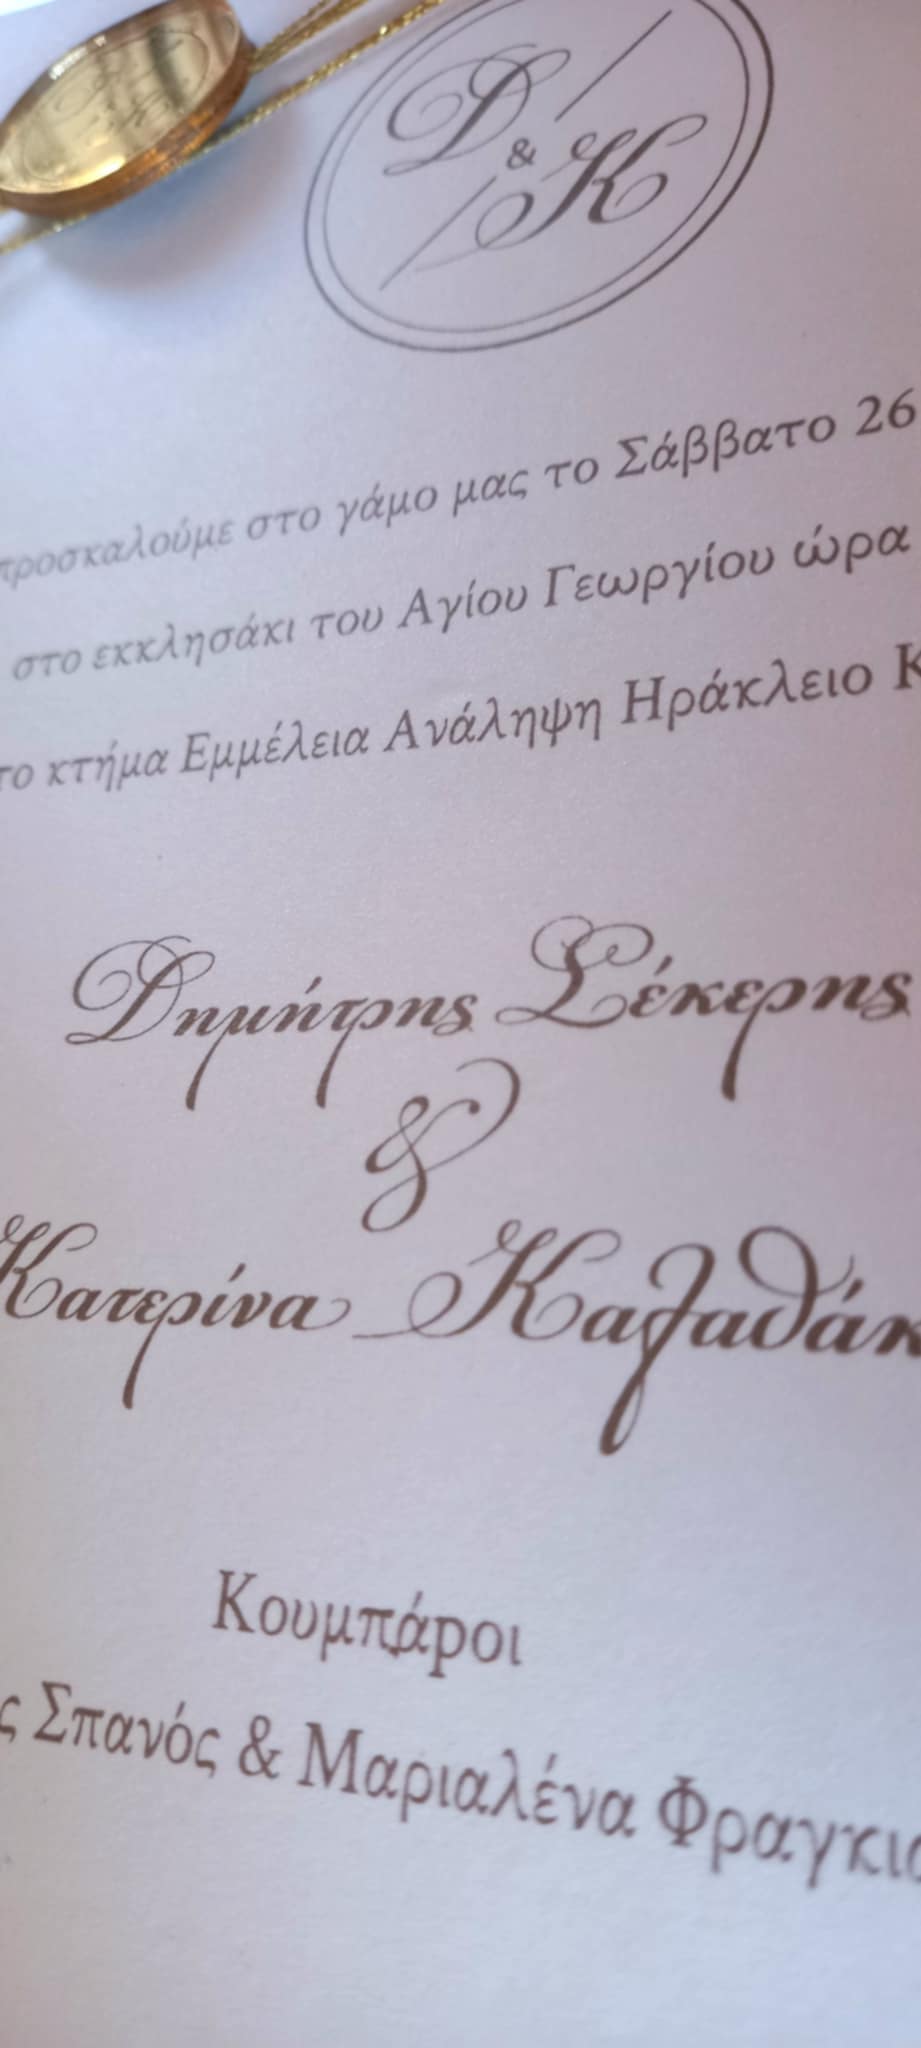 D & K
προσκαλούμε στο γάμο μας το Σάββατο 26
στο εκκλησάκι του Αγίου Γεωργίου ώρα
το κτήμα Εμμέλεια Ανάληψη Ηράκλειο Κ
Δημήτρης Σέκερης
&
Κατερίνα Καλαθάκ
Κουμπάροι
ς Σπανός & Μαριαλένα Φραγκι